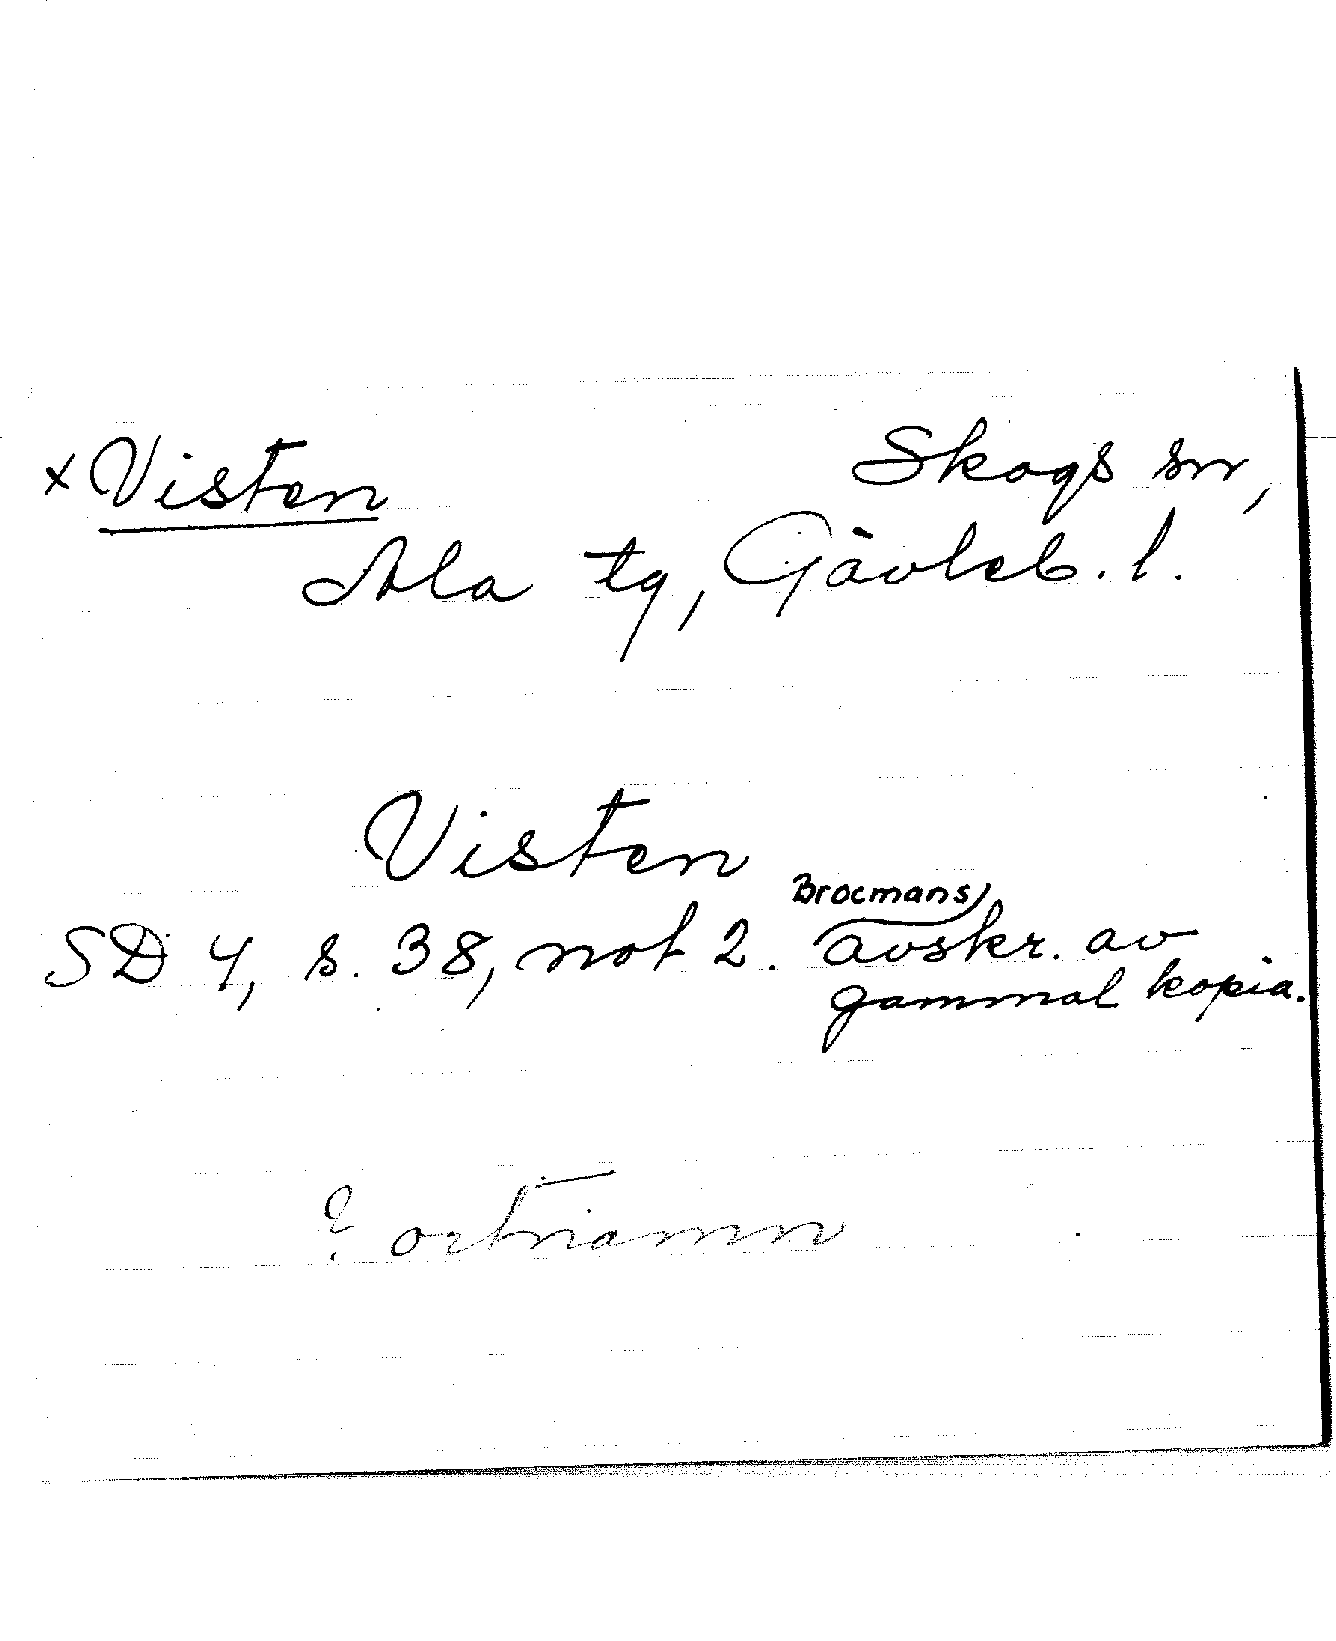 x Visten Skogs sn,
Ala tg, Gävleb. l.
Visten
Brocmans
SD 4, s. 38, not 2. avskr. av
gammal kopia.
? ortnamn